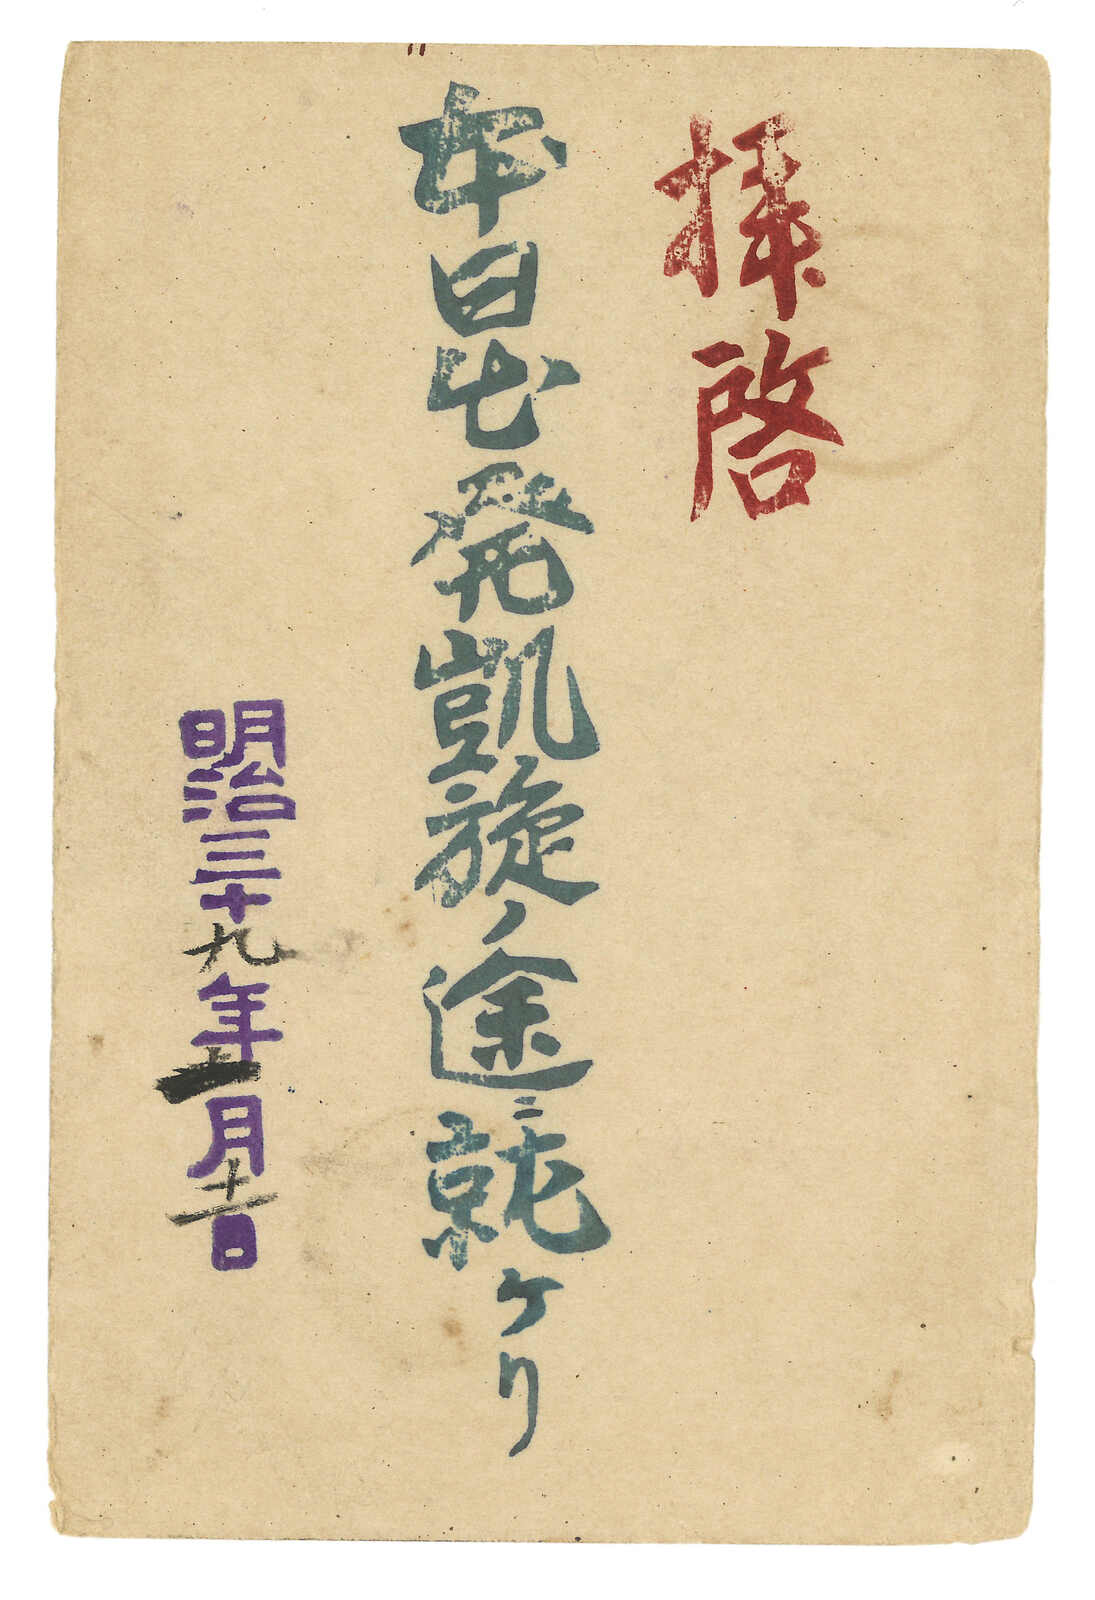 拝啓
本日出発凱旋ノ途ニ就ケリ
明治三十九年一月十一日